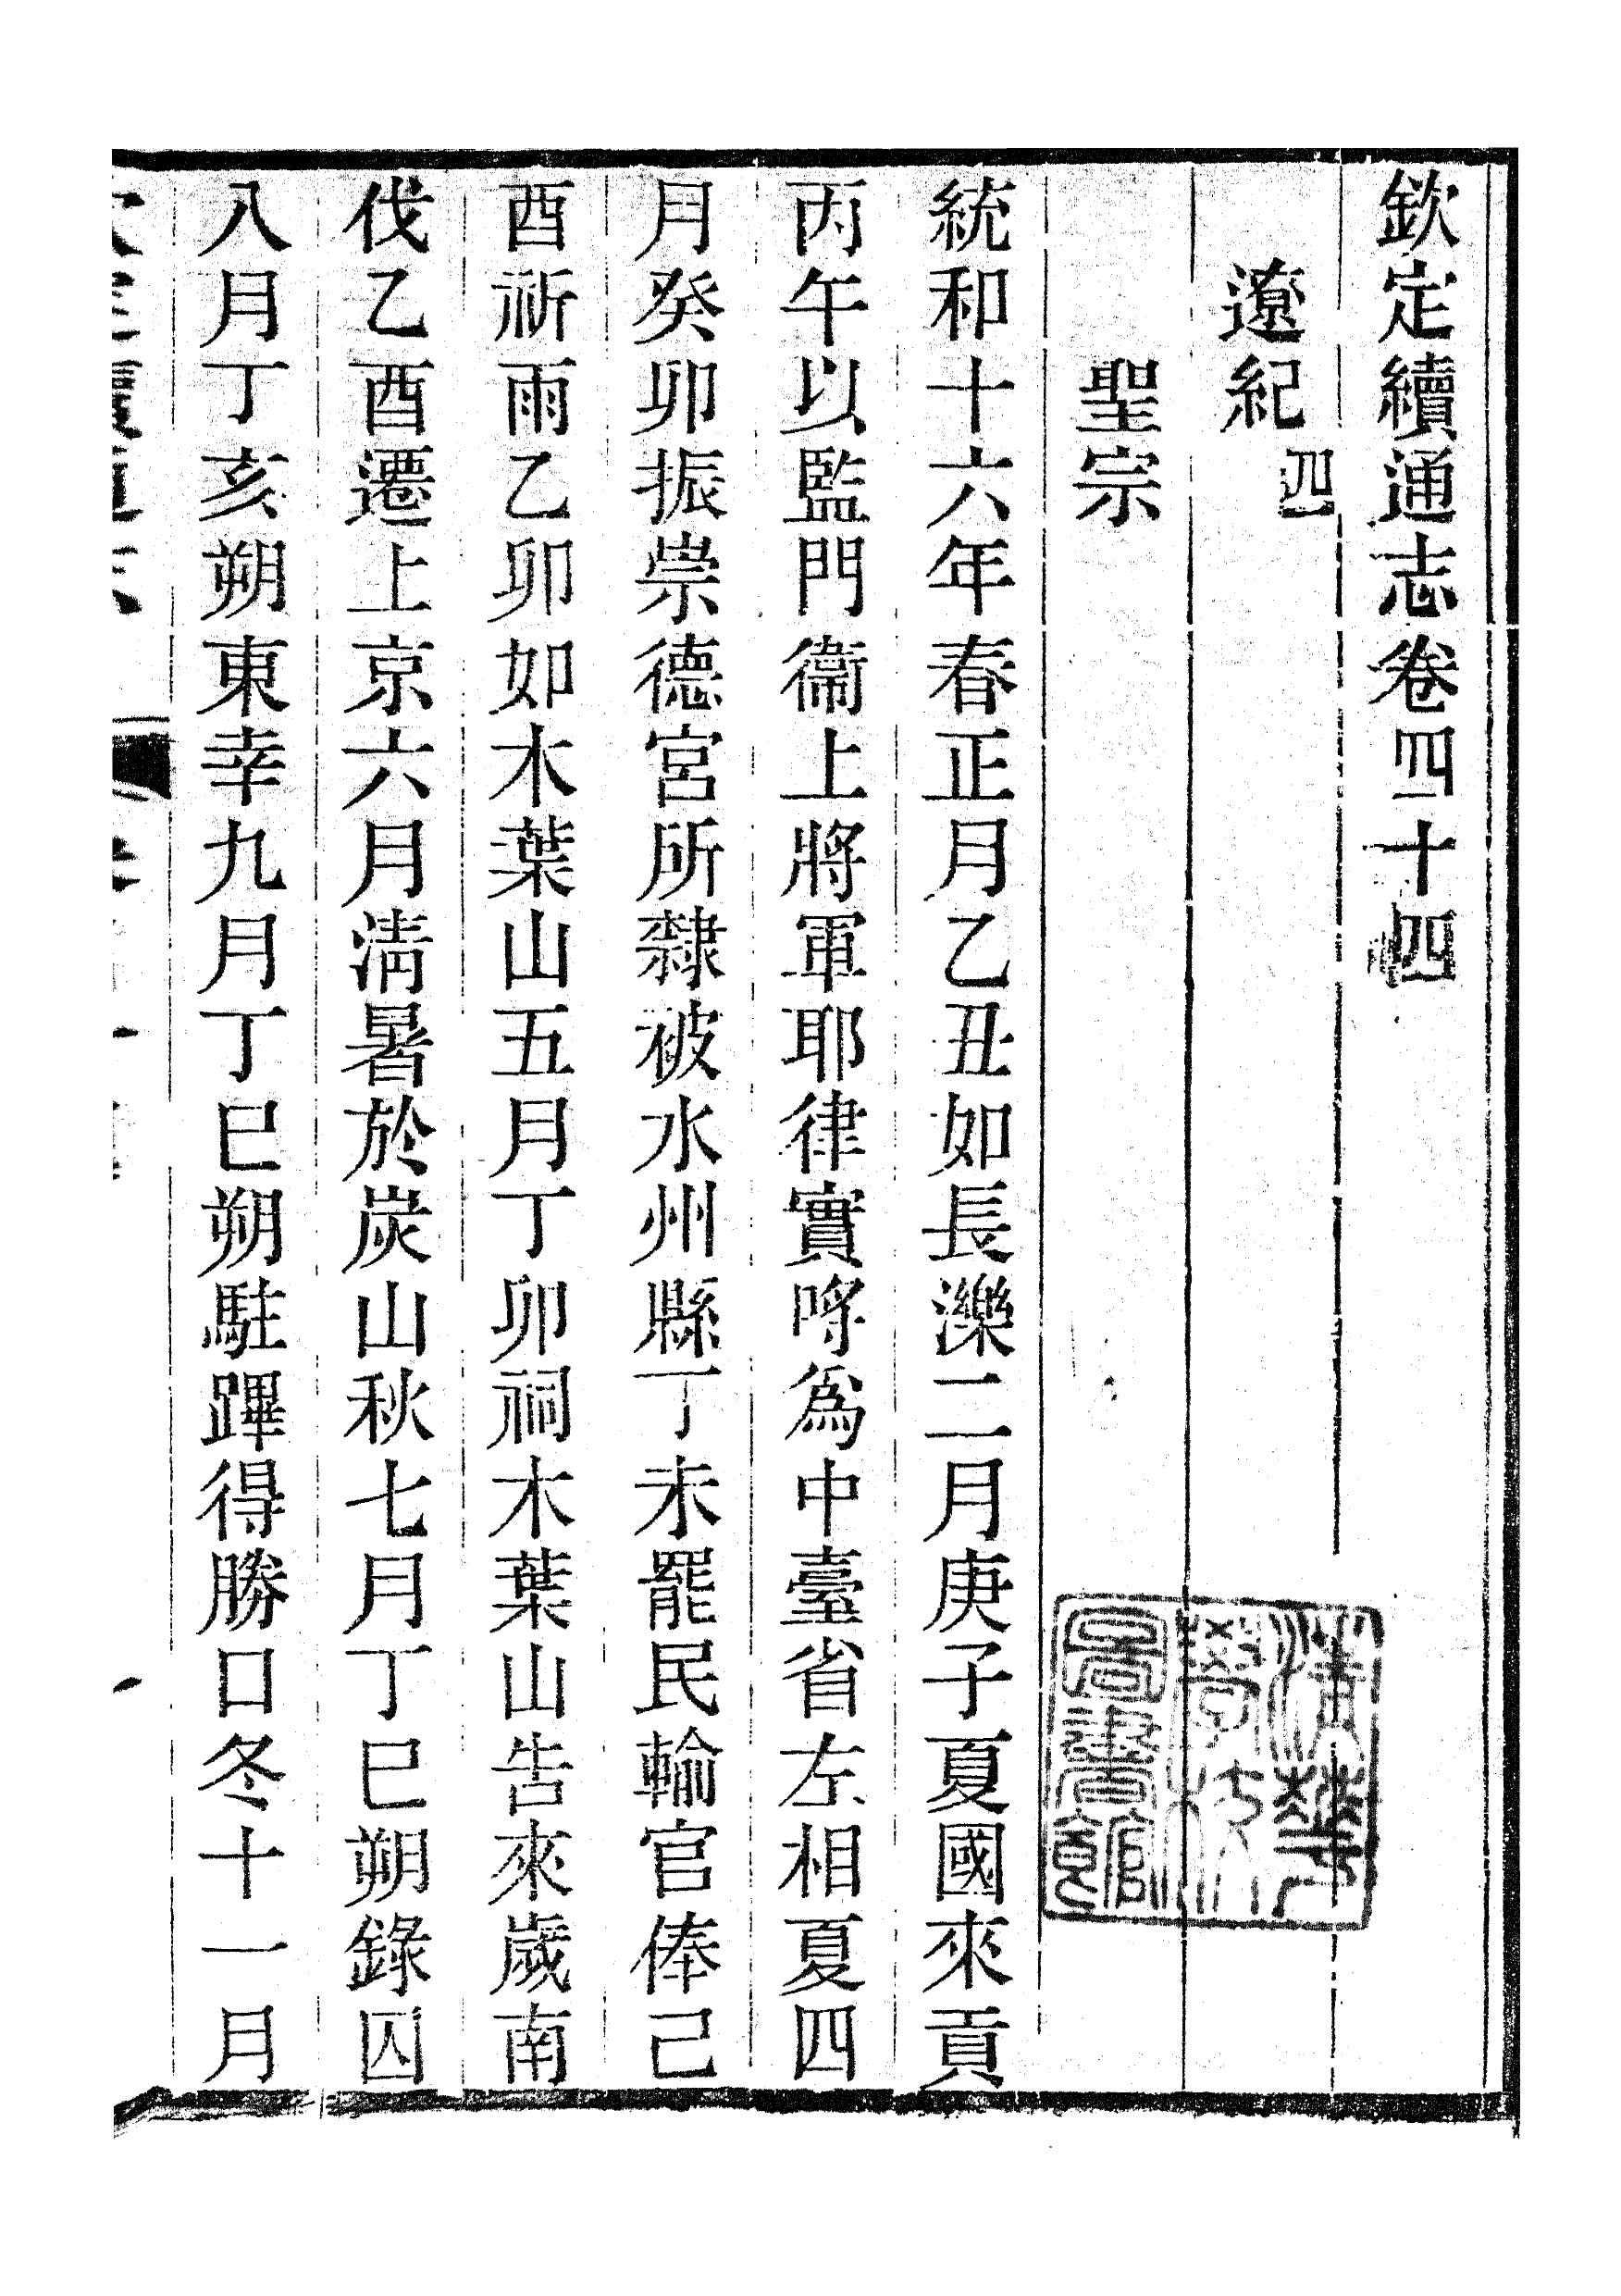 欽定續通志卷四十四
遼紀四
聖宗
統和十六年春正月乙丑如長濼二月庚子夏國來貢
丙午以監門衞上將軍耶律實嘚爲中臺省左相夏四
月癸卯振崇德宮所隸被水州縣丁未罷民輸官俸己
酉祈雨乙卯如木葉山五月丁卯祠木葉山告來歲南
伐乙酉還上京六月淸暑於炭山秋七月丁巳朔錄囚
八月丁亥朔東幸九月丁巳朔駐蹕得勝口冬十一月
淸華學校圖書館